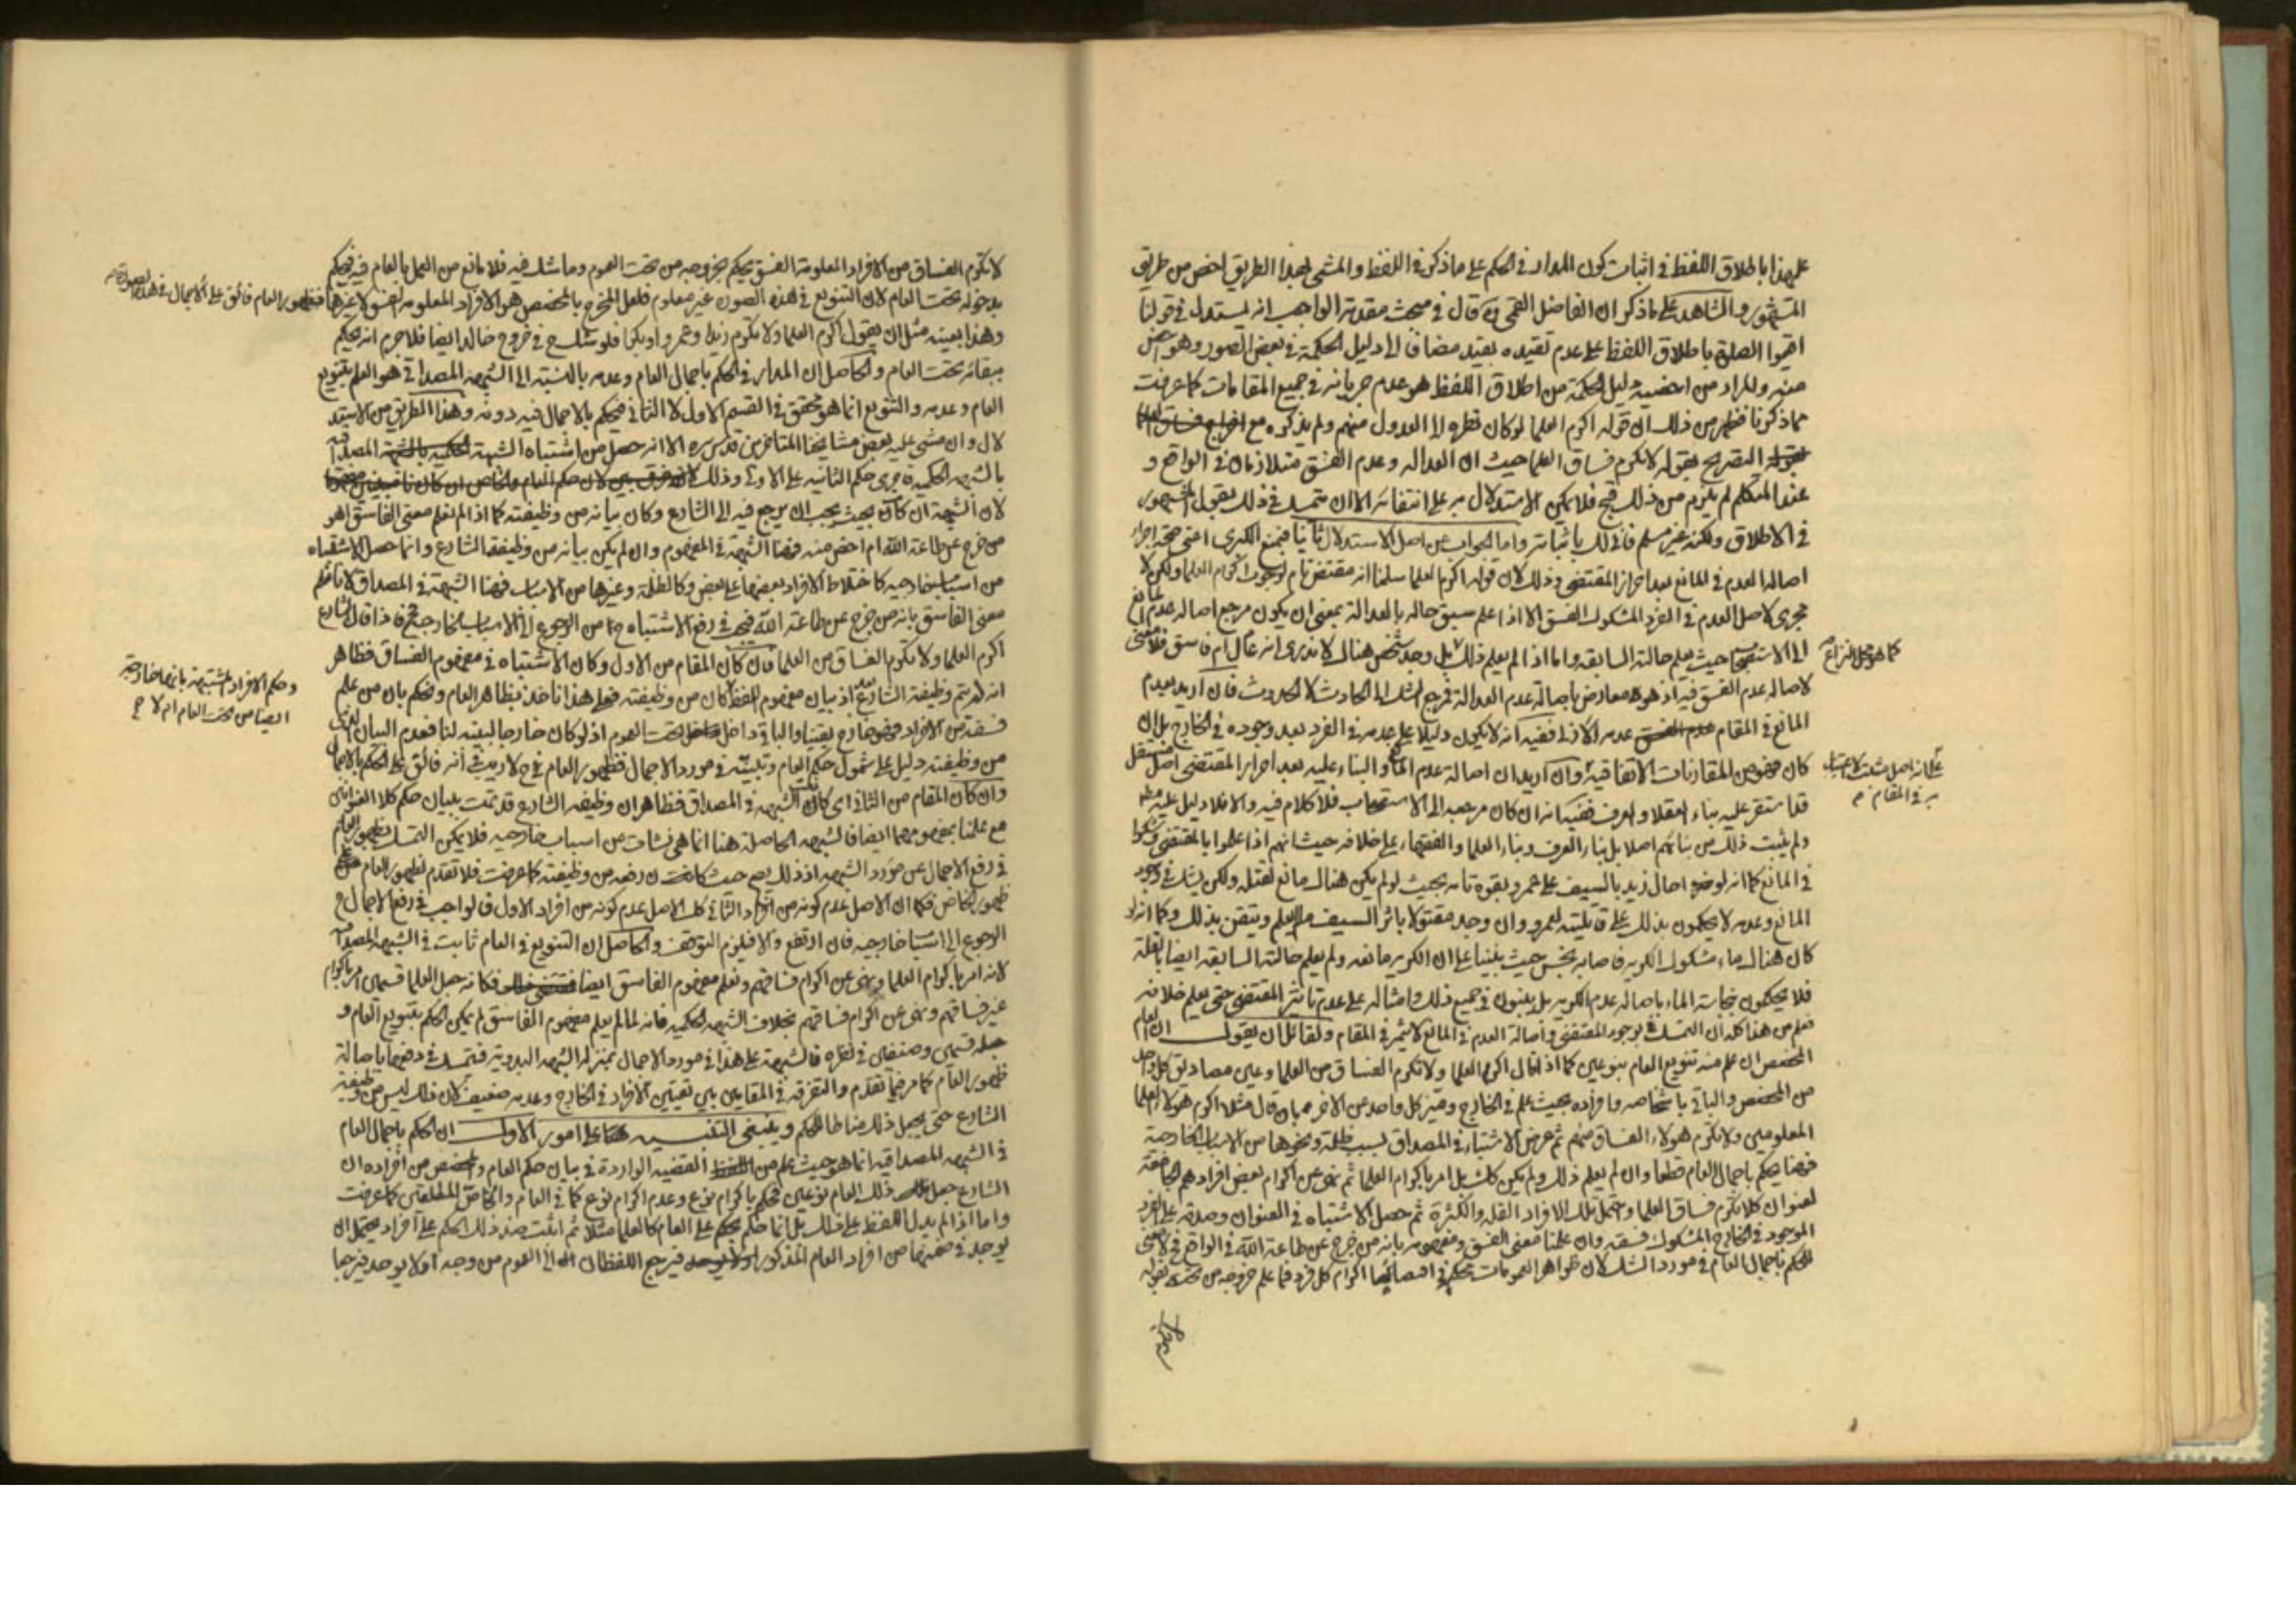 على هذا باطلاق اللفظ في اثبات كون المدار في الحكم على ما ذكر في اللفظ والمشي بهذا الطريق اخص من طريق
المشهور والشاهد على ما ذكر ان الفاضل القمي ره قال في مبحث مقدمة الواجب انه يستدل في قولنا
اقيموا الصلوة باطلاق اللفظ على عدم تقيده بقيد مضافا الى دليل الحكمة في بعض الصور وهو اخص
منه والمراد من اخصيه دليل الحكمة من اطلاق اللفظ هو عدم جريانه في جميع المقامات كما عرفت
مما ذكرنا فظهر من ذلك ان قوله اكرم العلما لو كان نظره الى العدول منهم ولم يذكره مع اخراج فساق العلما
بقوله التصريح بقوله لا تكرم فساق العلما حيث ان العداله وعدم الفسق متلازمان في الواقع و
عند المتكلم لم يلزم من ذلك قبح فلا يمكن الاستدلال به على انتفائه الا ان يتمسك في ذلك بقول المشهور
في الاطلاق ولكنه غير مسلم فانى لك باثباته واما الجواب عن اصل الاستدلال ثانيا فبمنع الكبرى اعني صحة اجراء
اصالة العدم في المانع بعد احراز المقتضي وذلك لان قوله اكرم العلما سلمنا انه مقتض تام لوجوب اكرام العلما ولكن لا
مجرى لاصل العدم في الفرد المشكوك الفسق الا اذا علم سبق حاله بالعدالة بمعنى ان يكون مرجع اصاله عدم المانع
الى الاستصحاب حيث يعلم حالته السابقه واما اذا لم يعلم ذلك بل وجد شخص هناك لا ندرى انه عادل ام فاسق فلا معنى
كما هو محل النزاع
لاصاله عدم الفسق فيه اذ هو معارض باصالة عدم العدالة فمرجع الشك الى الحادث لا الحدوث فان اريد بعدم
المانع في المقام عدم الفسق عدمه الازلي ففيه انه لا يكون دليلا على عدمه في الفرد بعد وجوده في الخارج بل ان
كان فهو من المقارنات الاتفاقية وان اريد ان اصالة عدم المانع والبناء عليه بعد احراز المقتضي اصل مستقل
على انه اصل مثبت لا اعتبار
به في المقام م
قد استقر عليه بناء العقلا والعرف ففيه انه ان كان مرجعه الى الاستصحاب فلا كلام فيه والا فلا دليل عليه
ولم يثبت ذلك من بنائهم اصلا بل بناء العرف وبناء العلما والفقهاء على خلافه حيث انهم اذا علموا بالمقتضي وشكوا
في المانع كما انه لو اجال زيد بالسيف على عمرو بقوة تامه بحيث لو لم يكن هناك مانع لقتله ولكن يشك في وجود
المانع وعدمه لا يحكمون بذلك على قابليته لعمرو وان وجد مقتولا باثر السيف ما لم يعلم ويتقن بذلك وكما انه لو
كان هناك ماء مشكوك الكريه فاصابه نجس حيث بنينا على ان الكريه مانعه ولم يعلم حالته السابقه ايضا بالقلة
فلا يحكمون بنجاسة الماء باصاله عدم الكريه بل يبنون في جميع ذلك وامثاله على عدم تاثير المقتضي حتى يعلم خلافه
فعلم من هذا كله ان التمسك بوجود المقتضي واصالة العدم في المانع لا يثمر في المقام ولقائل ان يقول ان العام
المخصص ان علم منه تنويع العام بنوعين كما اذا قال اكرم العلما ولا تكرم الفساق من العلما وعين مصاديق كل واحد
من المخصص والباقي باشخاصه وافراده بحيث علم في الخارج وميز كل واحد عن الاخر بان قال مثلا اكرم هولاء العلما
المعلومين ولا تكرم هولاء الفساق منهم ثم عرض الاشتباه في المصداق لسبب ظلمة ونحوها من الاسباب الخارجة
فهنا يحكم باجمال العام قطعا وان لم يعلم ذلك ولم يكن كك بل امر باكرام العلما ثم نهى عن اكرام بعض افرادهم
لعنوان كلا تكرم فساق العلما وتحمل تلك الافراد القله والكثرة ثم حصل الاشتباه في العنوان وصدقه على الفرد
الموجود في الخارج المشكوك فسقه وان علمنا معنى الفسق ومفهومه بانه من خرج عن طاعة الله في الواقع فلا معنى
للحكم باجمال العام في مورد الشك لان ظواهر العمومات محكم في اقتضائها اكرام كل فرد فما علم خروجه من تحته بقوله
لا تكرم الفساق من الافراد المعلومة الفسق يحكم بخروجه من تحت العموم وما شك فيه فلا مانع من العمل بالعام فيه فيحكم
بدخوله تحت العام لان التنويع في هذه الصورة غير معلوم فلعل المخرج بالمخصص هو الافراد المعلومه الفسق لا غيرها فظهور العام فائق على الاجمال في هذه الصورة
وهذا بعينه مثل ان يقول اكرم العلما ولا تكرم زيدا وعمروا وبكرا فلو شك ح في خروج خالد ايضا فلا جرم انه يحكم
ببقائه تحت العام والحاصل ان المدار في الحكم باجمال العام وعدمه بالنسبة الى الشبهه المصداقيه هو العلم بتنويع
العام وعدمه والتنويع انما هو متحقق في القسم الاول لا الثاني فيحكم بالاجمال فيه دونه وهذا الطريق من الاستد
لال وان مشى عليه بعض مشايخنا المتاخرين قدس سره الا انه حصل من اشتباه الشبهة الحكميه بالشبهة المصداقيه
بالشبهه الحكميه فاجرى حكم الثانيه على الاولى وذلك لان حكم العام والخاص ان كان
لان الشبهة ان كان بحيث يجب ان يرجع فيه الى الشارع وكان بيانه من وظيفته كما اذا لم نعلم معنى الفاسق اهو
من خرج عن طاعة الله ام اخص منه فهنا الشبهة في المفهوم وان لم يكن بيانه من وظيفة الشارع وانما حصل الاشتباه
من اسباب خارجيه كاختلاط الافراد بعضها على بعض وكالظلمة وغيرها من الاسباب فهنا الشبهة في المصداق لانا نعلم
معنى الفاسق بانه من خرج عن طاعة الله فيجب في رفع الاشتباه ح من الرجوع الى الاسباب الخارجية فاذا قال الشارع
اكرم العلما ولا تكرم الفساق من العلما فان كان المقام من الاول وكان الاشتباه في مفهوم الفساق فظاهر
انه لم يتم وظيفة الشارع بعد اذ بيان مفهوم اللفظ كان من وظيفته فعلى هذا ناخذ بظاهر العام ونحكم بان من علم
وحكم الافراد المشتبهة بانها خارجة
ايضا من تحت العام ام لا ح
فسقه من الافراد فهو خارج يقينا والباقي داخل تحت العموم اذ لو كان خارجا لبينه لنا فعدم البيان الذي
من وظيفته دليل على شمول حكم العام وتبيينه في مورد الاجمال فظهور العام في ح لا ريب في انه فائق على الحكم بالاجمال
وان كان المقام من الثاني اى كان الشبهه في المصداق فظاهر ان وظيفه الشارع قد تمت ببيان حكم كلا العنوانين
مع علمنا بمفهومهما ايضا فالشبهه الحاصله هنا انما هي نشات من اسباب خارجيه فلا يمكن التمسك بظهور العام
في رفع الاجمال عن مورد الشبهه اذ ذلك يصح حيث كان رفعه من وظيفته كما عرفت فلا تقدم لظهور العام على
ظهور الخاص فكما ان الاصل عدم كونه من افراد الثاني كك الاصل عدم كونه من افراد الاول فالواجب في رفع الاجمال ح
الرجوع الى اسباب خارجيه فان ارتفع والا فيلزم التوقف والحاصل ان التنويع في العام ثابت في الشبهه المصداقيه
لانه امر باكرام العلما ونهى عن اكرام فساقهم ونعلم مفهوم الفاسق ايضا فكانه جعل العلما قسمين امر باكرام
غير فساقهم ونهى عن اكرام فساقهم بخلاف الشبهه الحكميه فانه لما لم يعلم مفهوم الفاسق لم يمكن الحكم بتنويع العام و
جعله قسمين وصنفين في نظره فالشبهة على هذا في مورد الاجمال بمنزله الشبهه البدويه فنتمسك في دفعها باصالة
ظهور العام كما مر فيما تقدم والتفرقه في المقامين بين تعيين الافراد في الخارج وعدمه ضعيف لان ذلك ليس من وظيفة
الشارع حتى يجعل ذلك مناطا للحكم وينبغي التنبيه على امور الاول ان الحكم باجمال العام
في الشبهه المصداقيه انما هو حيث علم من القضيه الواردة في بيان حكم العام والمخصص من افراده ان
الشارع جعل ذلك العام نوعين فحكم باكرام نوع وعدم اكرام نوع كما في العام والخاص المطلقين كما عرفت
واما اذا لم يدل اللفظ على ذلك بل انما حكم على العام كالعلما مثلا ثم اثبت ضد ذلك الحكم على افراد يحتمل ان
يوجد في ضمنها من افراد العام المذكور اولا فيرجع اللفظان الى العموم من وجه او لا يوجد فيرجعا